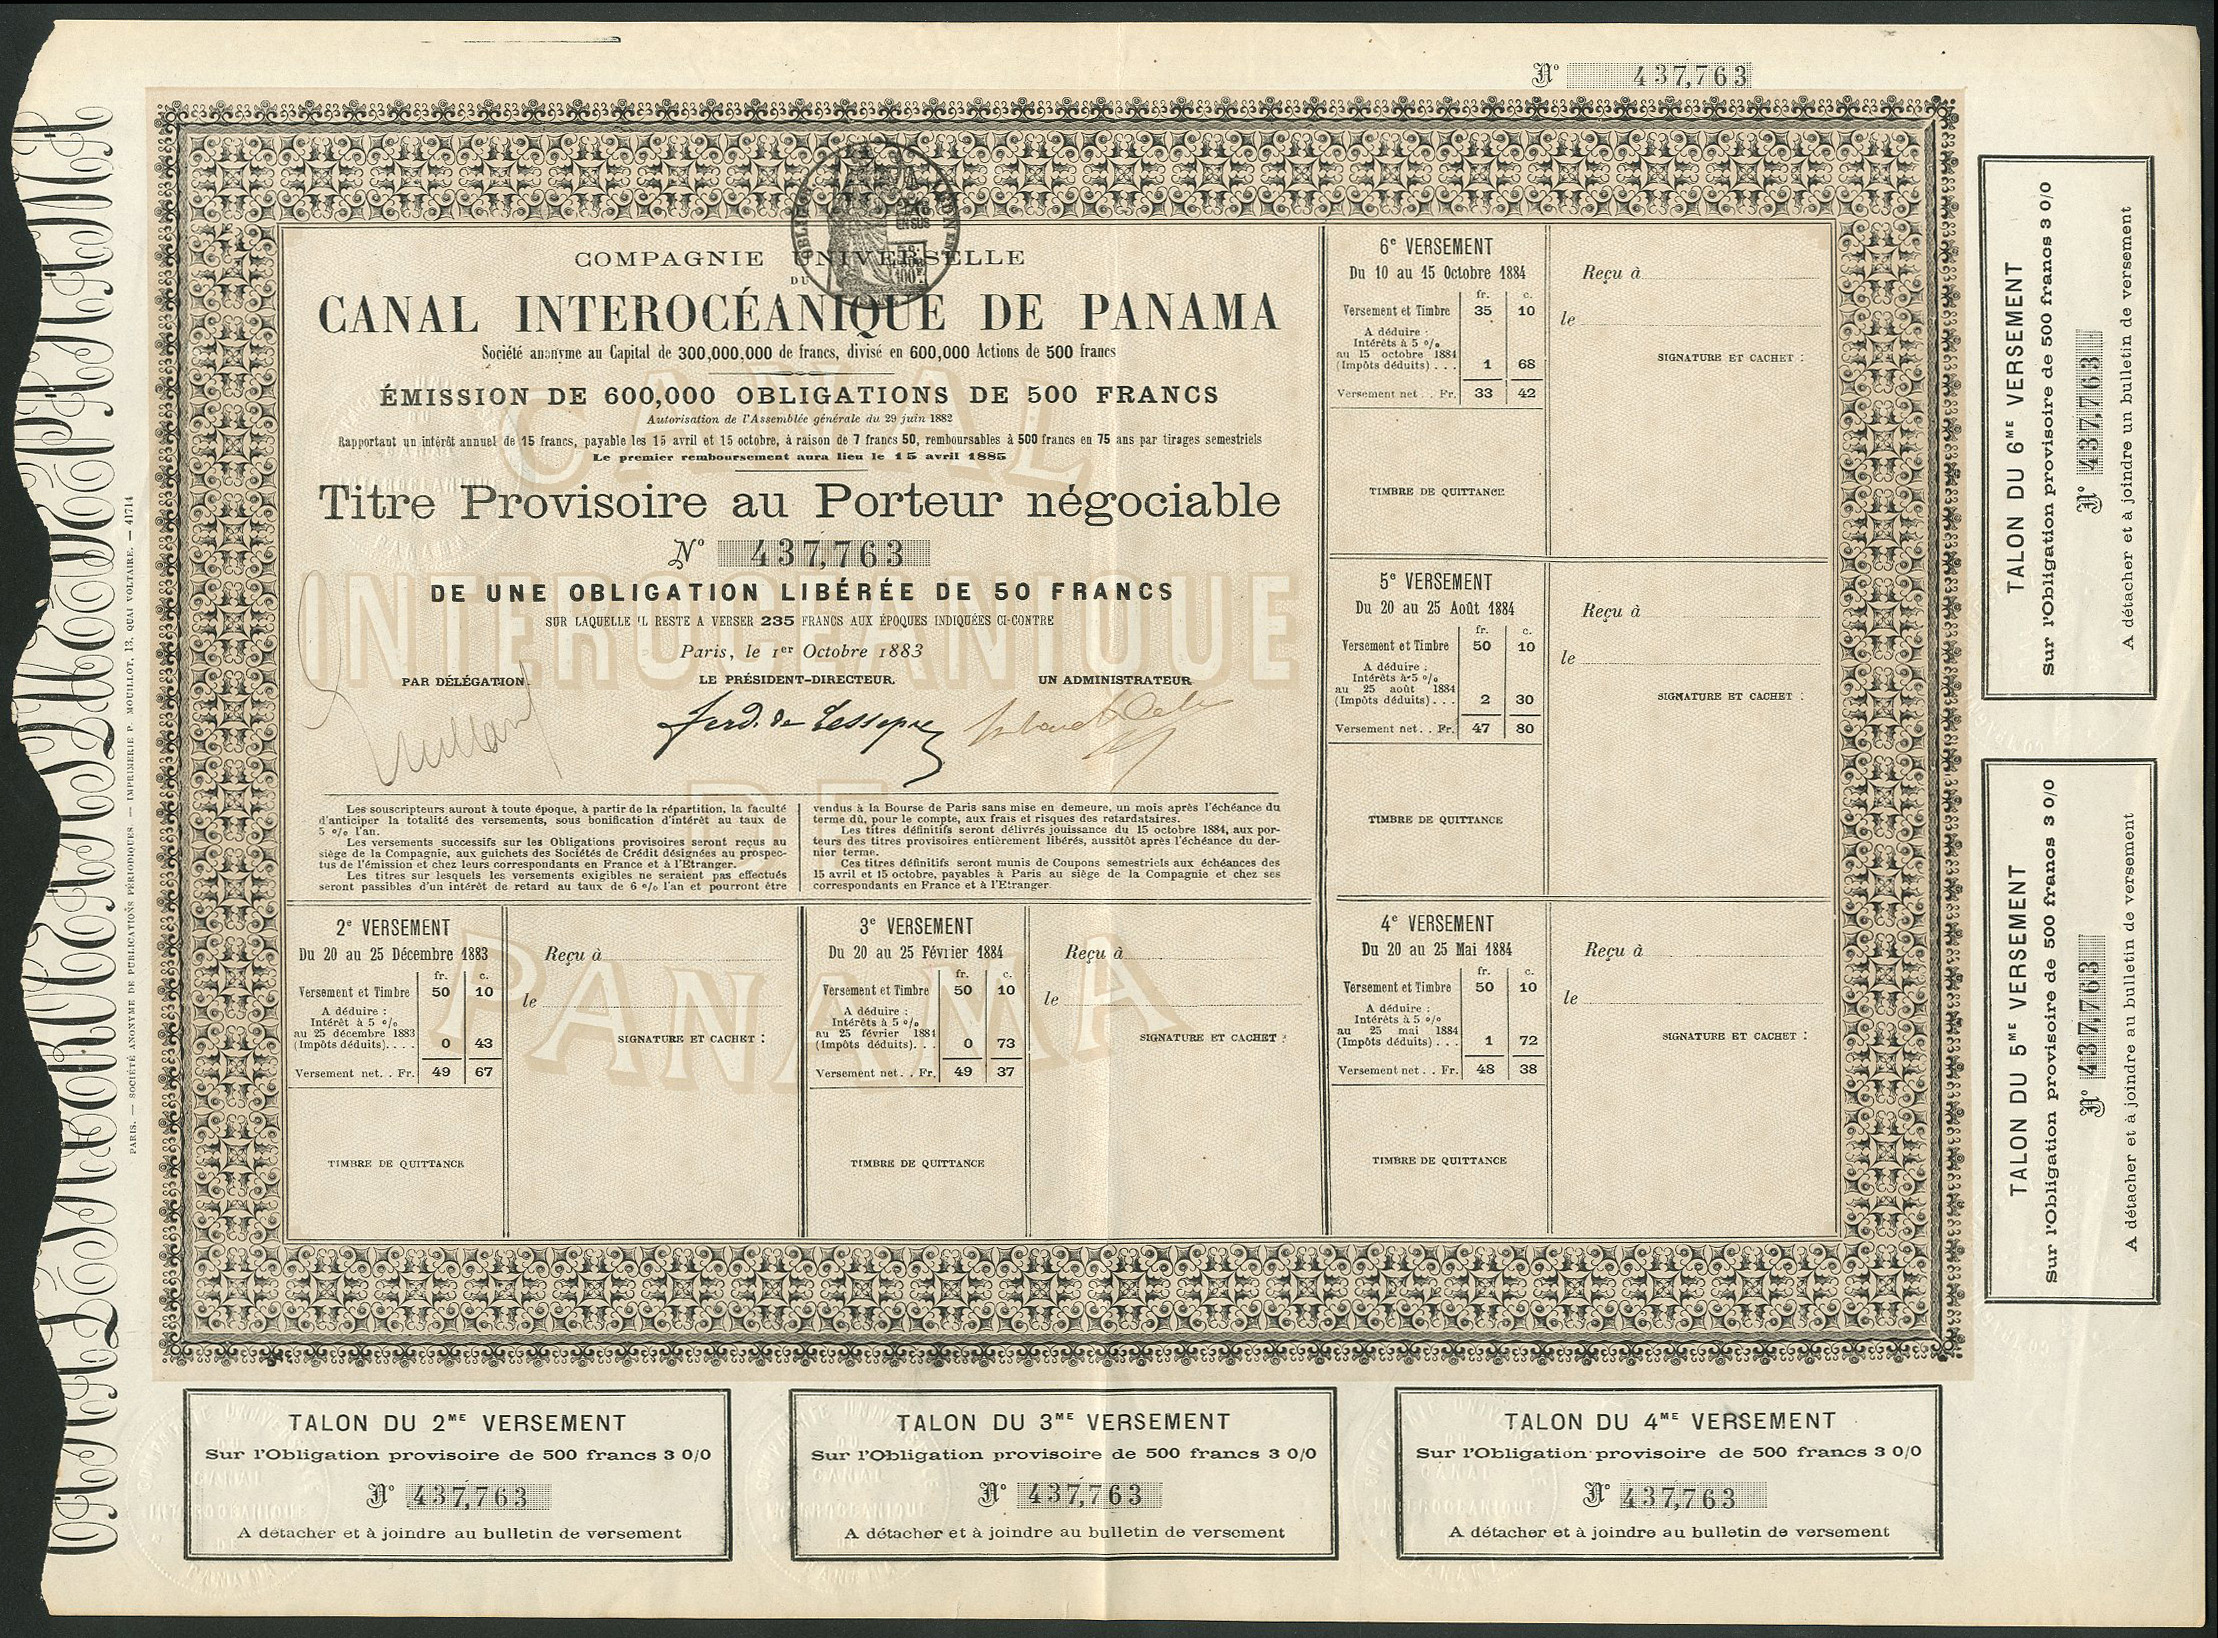 Nº 437,763
COMPAGNIE UNIVERSELLE
DU
CANAL INTEROCÉANIQUE DE PANAMA
Société anonyme au Capital de 300,000,000 de francs, divisé en 600,000 Actions de 500 francs
ÉMISSION DE 600,000 OBLIGATIONS DE 500 FRANCS
Autorisation de l'Assemblée générale du 29 juin 1882
Rapportant un intérêt annuel de 15 francs, payable les 15 avril et 15 octobre, à raison de 7 francs 50, remboursables à 500 francs en 75 ans par tirages semestriels
Le premier remboursement aura lieu le 15 avril 1885
Titre Provisoire au Porteur négociable
Nº 437,763
DE UNE OBLIGATION LIBÉRÉE DE 50 FRANCS
SUR LAQUELLE IL RESTE A VERSER 235 FRANCS AUX ÉPOQUES INDIQUÉES CI-CONTRE
Paris, le 1er Octobre 1883
PAR DÉLÉGATION.
LE PRÉSIDENT-DIRECTEUR.
UN ADMINISTRATEUR
Ferd. de Lesseps
Les souscripteurs auront à toute époque, à partir de la répartition, la faculté
d'anticiper la totalité des versements, sous bonification d'intérêt au taux de
5 % l'an.
Les versements successifs sur les Obligations provisoires seront reçus au
siège de la Compagnie, aux guichets des Sociétés de Crédit désignées au prospec-
tus de l'émission et chez leurs correspondants en France et à l'Etranger.
Les titres sur lesquels les versements exigibles ne seraient pas effectués
seront passibles d'un intérêt de retard au taux de 6 % l'an et pourront être
vendus à la Bourse de Paris sans mise en demeure, un mois après l'échéance du
terme dû, pour le compte, aux frais et risques des retardataires.
Les titres définitifs seront délivrés jouissance du 15 octobre 1884, aux por-
teurs des titres provisoires entièrement libérés, aussitôt après l'échéance du der-
nier terme.
Ces titres définitifs seront munis de Coupons semestriels aux échéances des
15 avril et 15 octobre, payables à Paris au siège de la Compagnie et chez ses
correspondants en France et à l'Etranger.
CANAL
INTEROCEANIQUE
DE
PANAMA
2e VERSEMENT
Du 20 au 25 Décembre 1883
fr. c.
Versement et Timbre 50 10
A déduire :
Intérêt à 5 %
au 25 décembre 1883
(Impôts déduits). . . . 0 43
Versement net. . Fr. 49 67
TIMBRE DE QUITTANCE
Reçu à
le
SIGNATURE ET CACHET :
3e VERSEMENT
Du 20 au 25 Février 1884
fr. c.
Versement et Timbre 50 10
A déduire :
Intérêts à 5 %
au 25 février 1884
(Impôts déduits). . . 0 73
Versement net. . Fr. 49 37
TIMBRE DE QUITTANCE
Reçu à
le
SIGNATURE ET CACHET :
6e VERSEMENT
Du 10 au 15 Octobre 1884
fr. c.
Versement et Timbre 35 10
A déduire :
Intérêts à 5 %
au 15 octobre 1884
(Impôts déduits) . . . 1 68
Versement net . . Fr. 33 42
TIMBRE DE QUITTANCE
Reçu à
le
SIGNATURE ET CACHET :
5e VERSEMENT
Du 20 au 25 Août 1884
fr. c.
Versement et Timbre 50 10
A déduire :
Intérêts à 5 %
au 25 août 1884
(Impôts déduits). . . 2 30
Versement net. . Fr. 47 80
TIMBRE DE QUITTANCE
Reçu à
le
SIGNATURE ET CACHET :
4e VERSEMENT
Du 20 au 25 Mai 1884
fr. c.
Versement et Timbre 50 10
A déduire :
Intérêts à 5 %
au 25 mai 1884
(Impôts déduits). . . 1 72
Versement net . . Fr. 48 38
TIMBRE DE QUITTANCE
Reçu à
le
SIGNATURE ET CACHET :
TALON DU 6ME VERSEMENT
Sur l'Obligation provisoire de 500 francs 3 0/0
Nº 437,763
A détacher et à joindre un bulletin de versement
TALON DU 5ME VERSEMENT
Sur l'Obligation provisoire de 500 francs 3 0/0
Nº 437,763
A détacher et à joindre au bulletin de versement
TALON DU 2ME VERSEMENT
Sur l'Obligation provisoire de 500 francs 3 0/0
Nº 437,763
A détacher et à joindre au bulletin de versement
TALON DU 3ME VERSEMENT
Sur l'Obligation provisoire de 500 francs 3 0/0
Nº 437,763
A détacher et à joindre au bulletin de versement
TALON DU 4ME VERSEMENT
Sur l'Obligation provisoire de 500 francs 3 0/0
Nº 437,763
A détacher et à joindre au bulletin de versement
PARIS. — SOCIÉTÉ ANONYME DE PUBLICATIONS PÉRIODIQUES. — IMPRIMERIE P. MOUILLOT, 13, QUAI VOLTAIRE. — 41714